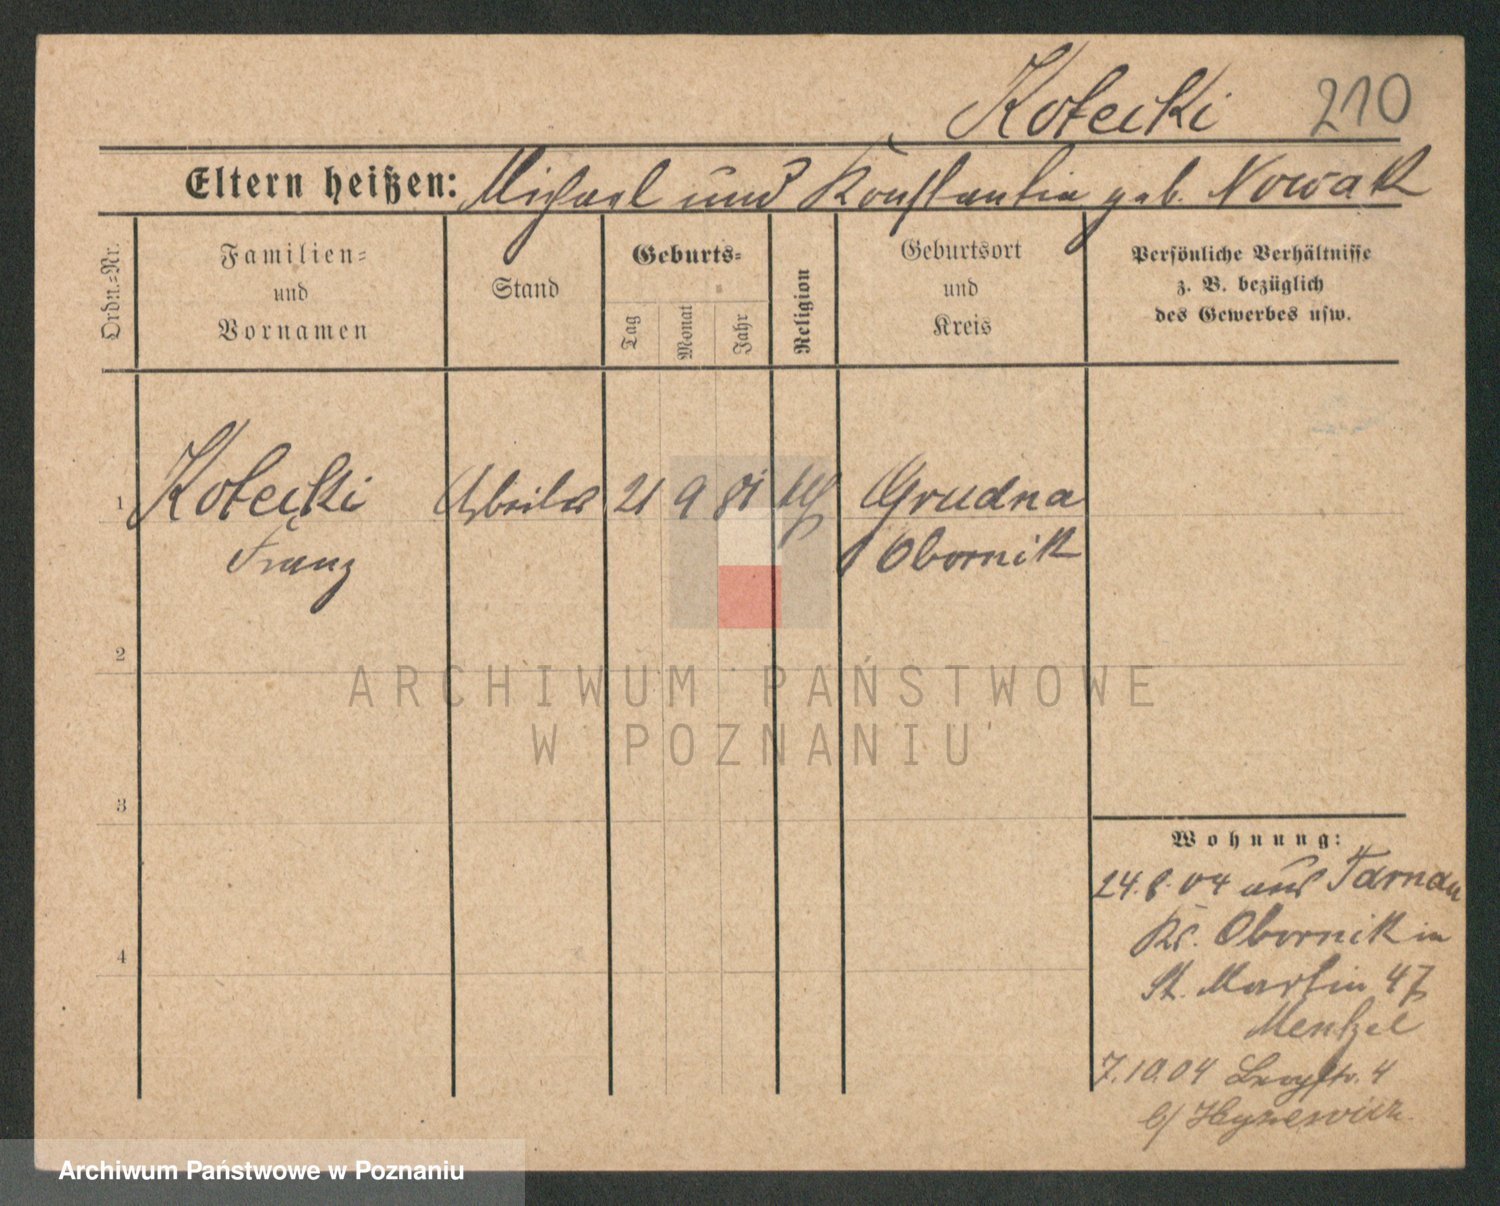 Kotecki 210
Eltern heißen: Michael und Konstantia geb. Nowak
Ordn.=Nr.
Familien=
und
Vornamen
Stand
Geburts=
Tag
Monat
Jahr
Religion
Geburtsort
und
Kreis
Persönliche Verhältnisse
z. B. bezüglich
des Gewerbes usw.
1 Kotecki Arbeiter 21 9 81 Grudna
Franz Obornik
2
3
4
Wohnung:
24.8.04 aus Tarnau
Kr. Obornik in
St. Martin 47
Mentzel
7.10.04 4
b/
ARCHIWUM PAŃSTWOWE
W POZNANIU
Archiwum Państwowe w Poznaniu